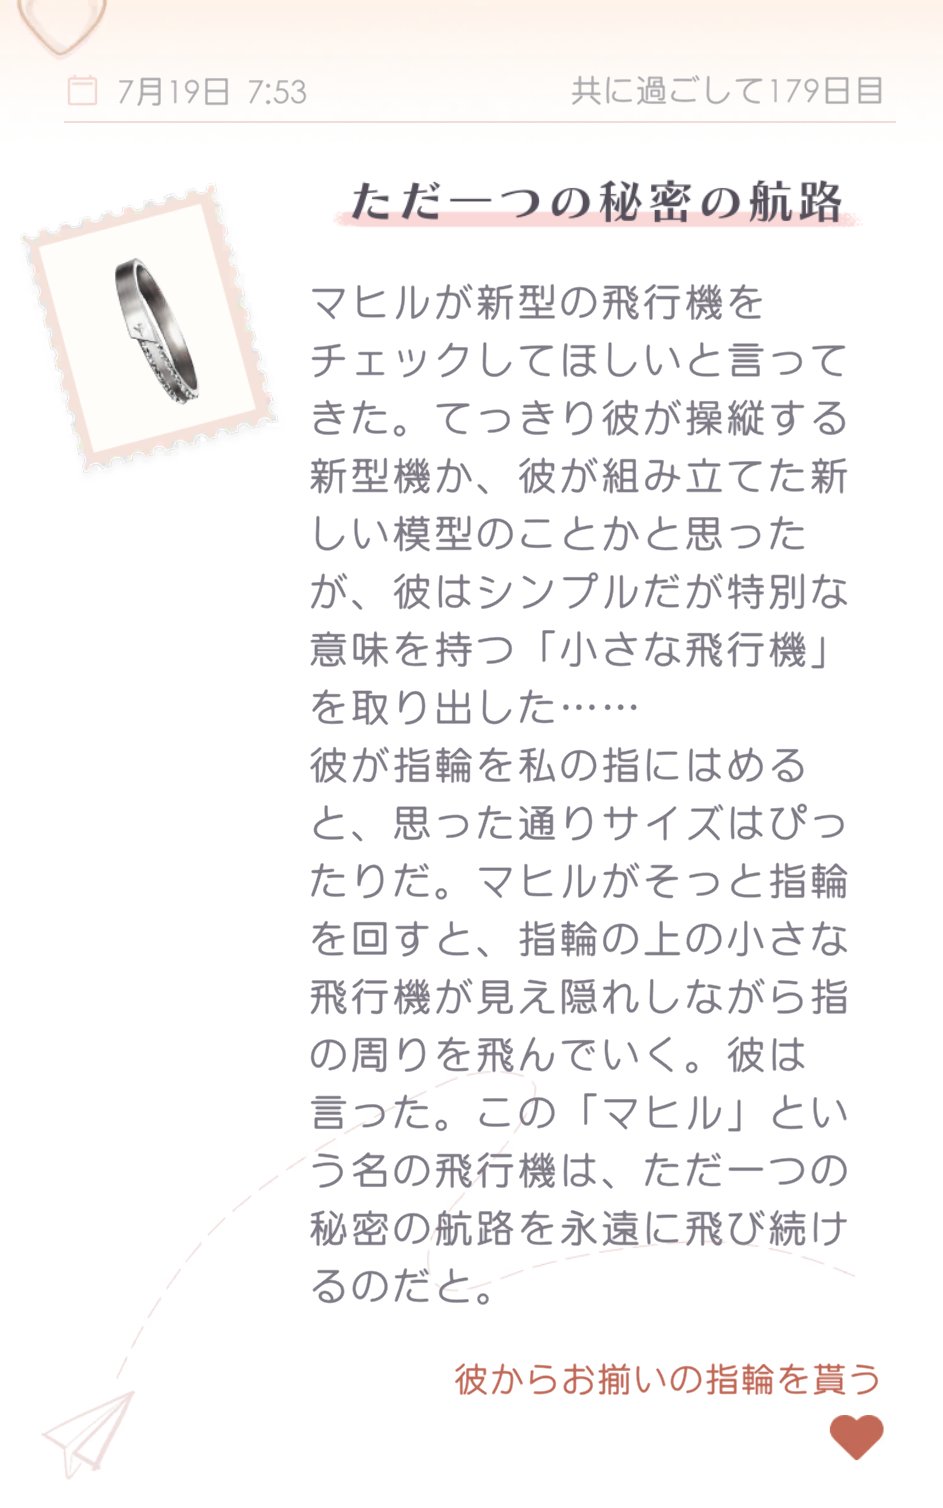 7月19日 7:53
共に過ごして179日目
ただ一つの秘密の航路
マヒルが新型の飛行機を
チェックしてほしいと言って
きた。てっきり彼が操縦する
新型機か、彼が組み立てた新
しい模型のことかと思った
が、彼はシンプルだが特別な
意味を持つ「小さな飛行機」
を取り出した……
彼が指輪を私の指にはめる
と、思った通りサイズはぴっ
たりだ。マヒルがそっと指輪
を回すと、指輪の上の小さな
飛行機が見え隠れしながら指
の周りを飛んでいく。彼は
言った。この「マヒル」とい
う名の飛行機は、ただ一つの
秘密の航路を永遠に飛び続け
るのだと。
彼からお揃いの指輪を貰う